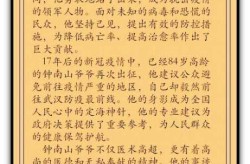 领军人物。面对未知的病毒和恐慌的
民众，他坚持己见，提出有效的防控措
施，为降低病亡率、提高治愈率作出了
巨大贡献。
17年后的新冠疫情中，已经84岁高龄
的钟南山爷爷再次出征，他建议公众避
免前往疫情严重的地区，自己却毅然前
往武汉防疫最前线。他的身影成为全国
人民心中的定海神针，他的专业建议为
政府决策提供了重要参考，为人民群众
的健康保驾护航。
钟南山爷爷不仅医术高超，更有着高